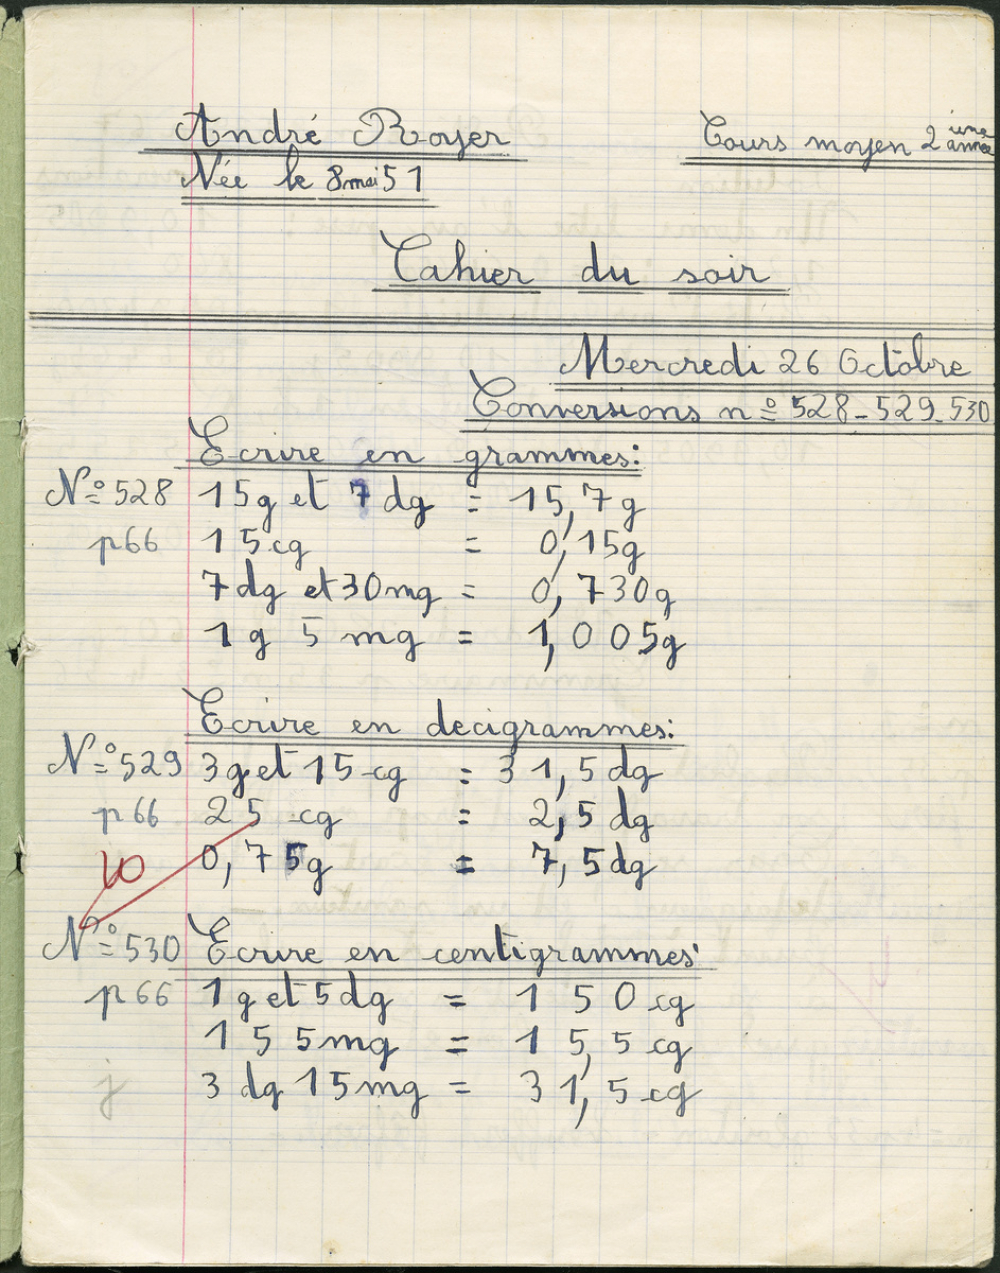 André Royer
Cours moyen 2 ième année
Née le 8 mai 51
Cahier du soir
Mercredi 26 Octobre
Conversions nº 528-529-530
Ecrire en grammes:
Nº 528 15g et 7 dg = 15,7g
p66 15 cg = 0,15g
7 dg et 30 mg = 0,730g
1 g 5 mg = 1,005g
Ecrire en decigrammes:
Nº 529 3g et 15 cg = 31,5 dg
p66 25 cg = 2,5 dg
10 0,75g = 7,5 dg
Nº 530 Ecrire en centigrammes:
p66 1g et 5 dg = 150 cg
155 mg = 15,5 cg
3 dg 15 mg = 31,5 cg